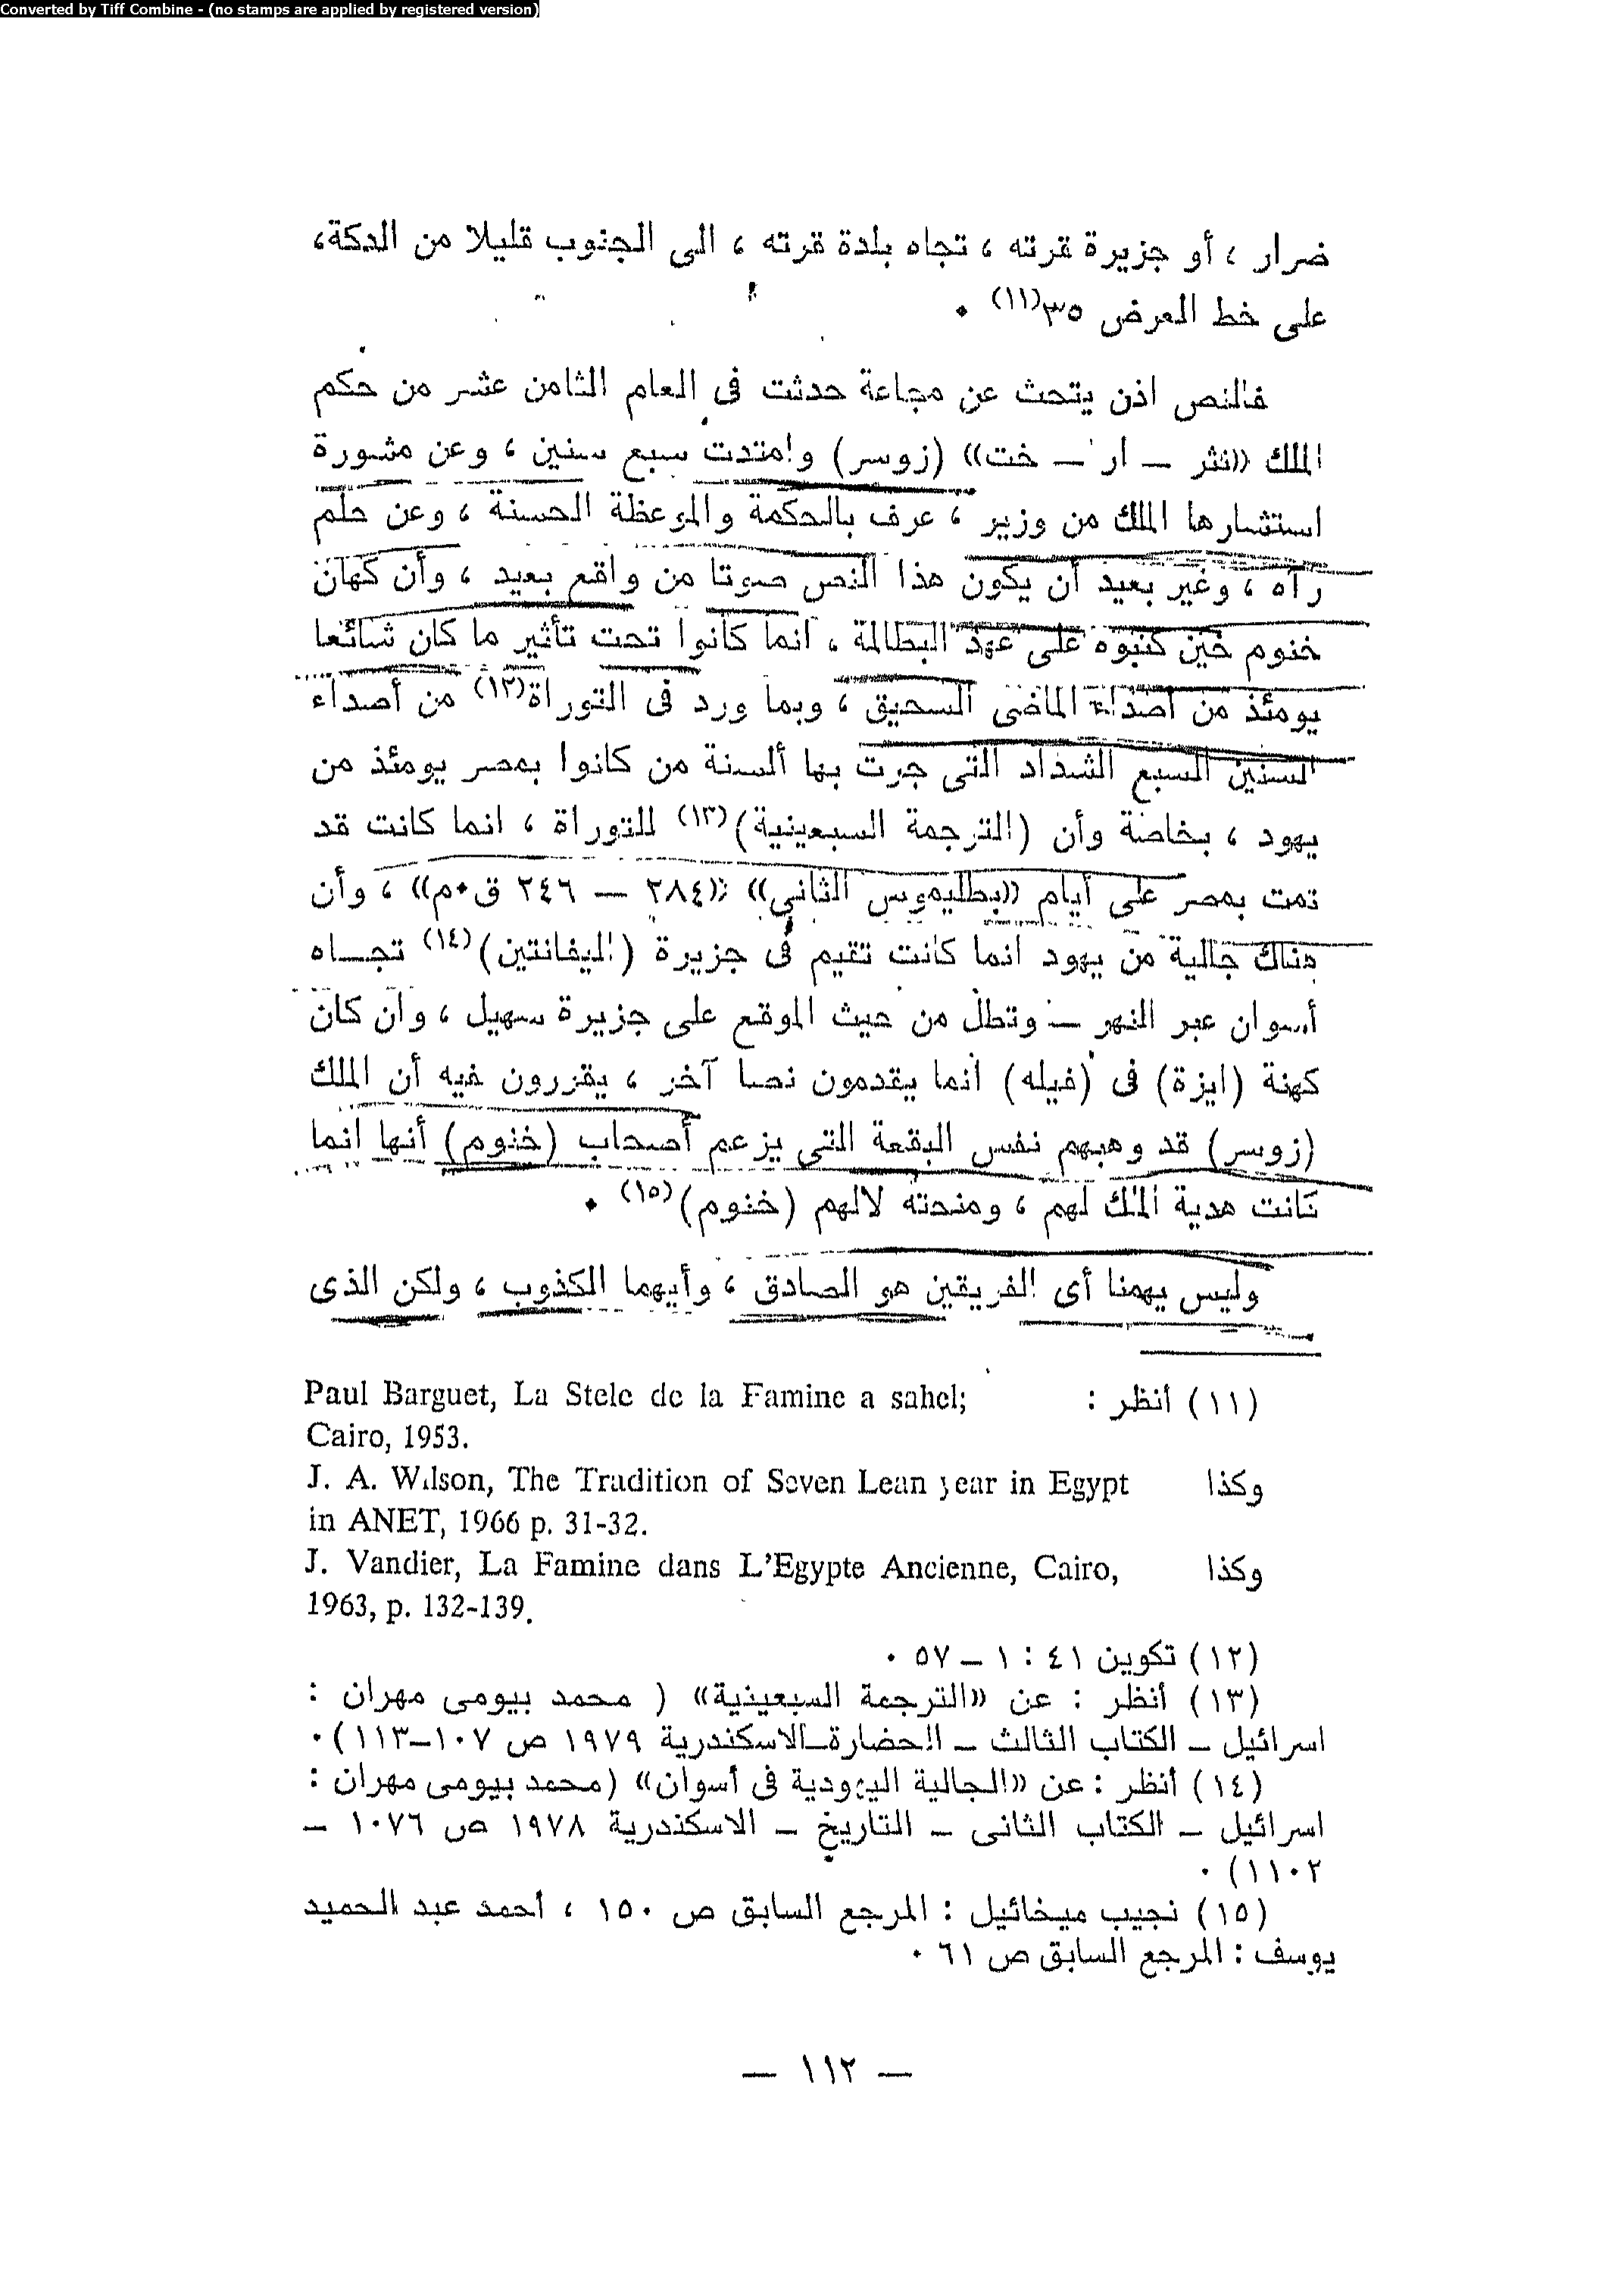 Converted by Tiff Combine - (no stamps are applied by registered version)
ضرار ، أو جزيرة قرته ، تجاه بلدة قرته ، الى الجنوب قليلا من الدكة،
على خط العرض ٣٥(١١) ٠
فالنص اذن يتحث عن مجاعة حدثت فى العام الثامن عشر من حكم
الملك «نثر — ار — خت» (زوسر) وامتدت سبع سنين ، وعن مشورة
استشارها الملك من وزير ، عرف بالحكمة والموعظة الحسنة ، وعن حلم
رآه ، وغير بعيد أن يكون هذا النص صوتا من واقع بعيد ، وأن كهان
خنوم حين كتبوه على عهد البطالمة ، انما كانوا تحت تأثير ما كان شائعا
يومئذ من أصداء الماضى السحيق ، وبما ورد فى التوراة(١٢) من أصداء
السنين السبع الشداد التى جرت بها ألسنة من كانوا بمصر يومئذ من
يهود ، بخاصة وأن (الترجمة السبعينية)(١٣) للتوراة ، انما كانت قد
تمت بمصر على أيام «بطليموس الثانى» «٢٨٤ — ٢٤٦ ق٠م» ، وأن
هناك جالية من يهود انما كانت تقيم فى جزيرة (اليفانتين)(١٤) تجـــاه
أسوان عبر النهر — وتطل من حيث الموقع على جزيرة سهيل ، وان كان
كهنة (ايزة) فى (فيله) انما يقدمون نصا آخر ، يقررون فيه أن الملك
(زوسر) قد وهبهم نفس البقعة التى يزعم أصحاب (خنوم) أنها انما
كانت هدية الملك لهم ، ومنحته لالهم (خنوم)(١٥) ٠
وليس يهمنا أى الفريقين هو الصادق ، وأيهما الكذوب ، ولكن الذى
(١١) أنظر : Paul Barguet, La Stele de la Famine a sahel;
Cairo, 1953.
وكذا J. A. Wilson, The Tradition of Seven Lean year in Egypt
in ANET, 1966 p. 31-32.
وكذا J. Vandier, La Famine dans L'Egypte Ancienne, Cairo,
1963, p. 132-139.
(١٢) تكوين ٤١ : ١ — ٥٧ ٠
(١٣) أنظر : عن «الترجمة السبعينية» ( محمد بيومى مهران :
اسرائيل — الكتاب الثالث — الحضارة—الاسكندرية ١٩٧٩ ص ١٠٧—١١٣) ٠
(١٤) أنظر : عن «الجالية اليهودية فى أسوان» (محمد بيومى مهران :
اسرائيل — الكتاب الثانى — التاريخ — الاسكندرية ١٩٧٨ ص ١٠٧٦ —
١١٠٢) ٠
(١٥) نجيب ميخائيل : المرجع السابق ص ١٥٠ ، أحمد عبد الحميد
يوسف : المرجع السابق ص ٦١ ٠
— ١١٢ —